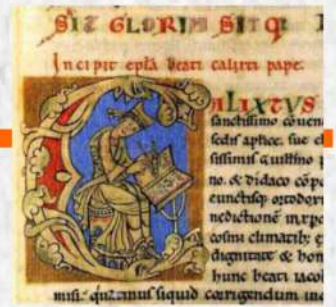 SIT GLORIA SITQ
Incipit epła beati calixti pape.
CALIXTVS
sanctissimo cōuen
sedis aplice. sue cl
sissimis q uuilhmo p
no. & didaco cōpo
cunctisq; ortodoxi
nedictionē in xp̄o
cosmi climatib; e
dignitate & hon
hunc beati iacoł
misi. quatinus siquid corrigendum in